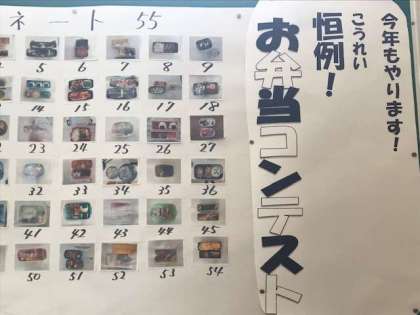 今年もやります!
こうれい
恒例!
お弁当コンテスト
ネート 55
5 6 7 8 9
14 15 16 17 18
23 24 25 26 27
32 33 34 35 36
41 42 43 44 45
50 51 52 53 54